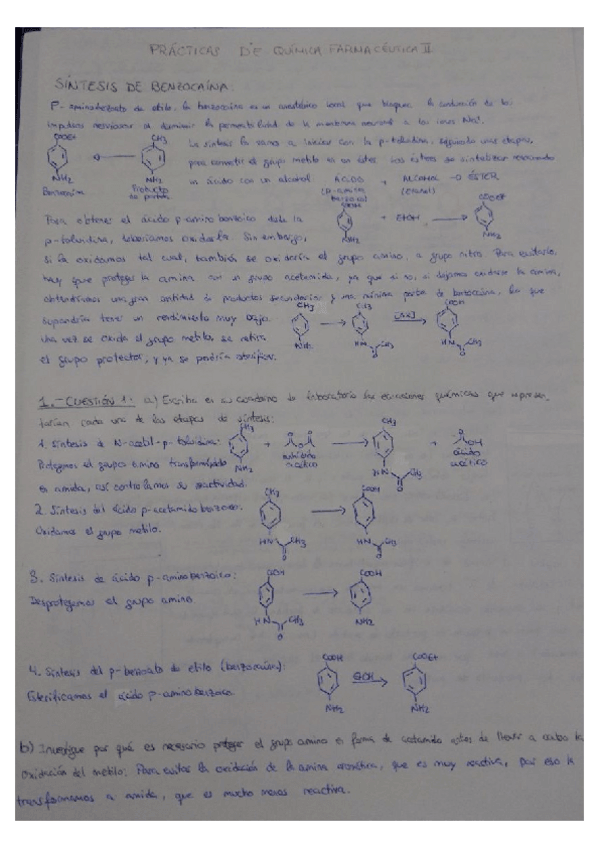 PRÁCTICAS DE QUÍMICA FARMACÉUTICA II
SÍNTESIS DE BENZOCAÍNA
P-aminobenzoato de etilo, la benzocaína es un anestésico local que bloquea la conducción de los
impulsos nerviosos al disminuir la permeabilidad de la membrana neuronal a los iones Na+.
COOEt CH3 La síntesis la vamos a iniciar con la p-toluidina, siguiendo unas etapas,
para convertir el grupo metilo en un éster. Los ésteres se sintetizan reaccionando
NH2 NH2 un ácido con un alcohol ÁCIDO + ALCOHOL → ÉSTER
Benzocaína Producto de partida (etanol)
COOH COOEt
+ EtOH →
NH2 NH2
Para obtener el ácido p-aminobenzoico desde la
p-toluidina, deberíamos oxidarla. Sin embargo,
si la oxidamos tal cual, también se oxidaría el grupo amino, a grupo nitro. Para evitarlo,
hay que proteger la amina con un grupo acetamida, ya que si no, si dejamos oxidarse la amina,
obtendríamos una gran cantidad de productos secundarios y una mínima parte de benzocaína, lo que
supondría tener un rendimiento muy bajo.
Una vez se oxida el grupo metilo, se retira
el grupo protector, y ya se podría esterificar.
CH3 CH3 COOH
→ [OX]
NH2 HN CH3 HN CH3
O O
1.- CUESTIÓN 1: a) Escriba en su cuaderno de laboratorio las ecuaciones químicas que represen-
tarían cada una de las etapas de síntesis:
1. Síntesis de N-acetil-p-toluidina:
Protegemos el grupo amino transformándolo
en amida, así controlamos su reactividad.
CH3 + anhídrido acético → CH3 + ácido acético
NH2 HN CH3
O
2. Síntesis del ácido p-acetamidobenzoico:
Oxidamos el grupo metilo.
CH3 → COOH
HN CH3 HN CH3
O O
3. Síntesis de ácido p-aminobenzoico:
Desprotegemos el grupo amino.
COOH → COOH
HN CH3 NH2
O
4. Síntesis del p-benzoato de etilo (benzocaína):
Esterificamos el ácido p-aminobenzoico.
COOH → COOEt
NH2 NH2
b) Investigue por qué es necesario proteger el grupo amino en forma de acetamida antes de llevar a cabo la
oxidación del metilo: Para evitar la oxidación de la amina aromática, que es muy reactiva, por eso la
transformamos a amida, que es mucho menos reactiva.